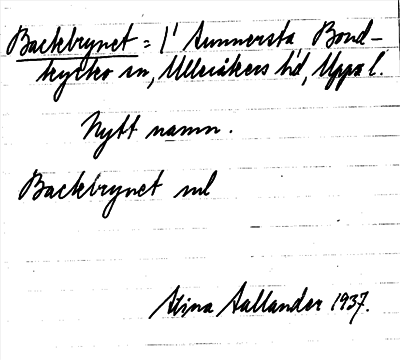 Backbrynet = 1' Sunnersta Bond-
kyrko sn, Ulleråkers hd, Uppsa l.
Nytt namn.
Backbrynet ml
Stina Sallander 1937.